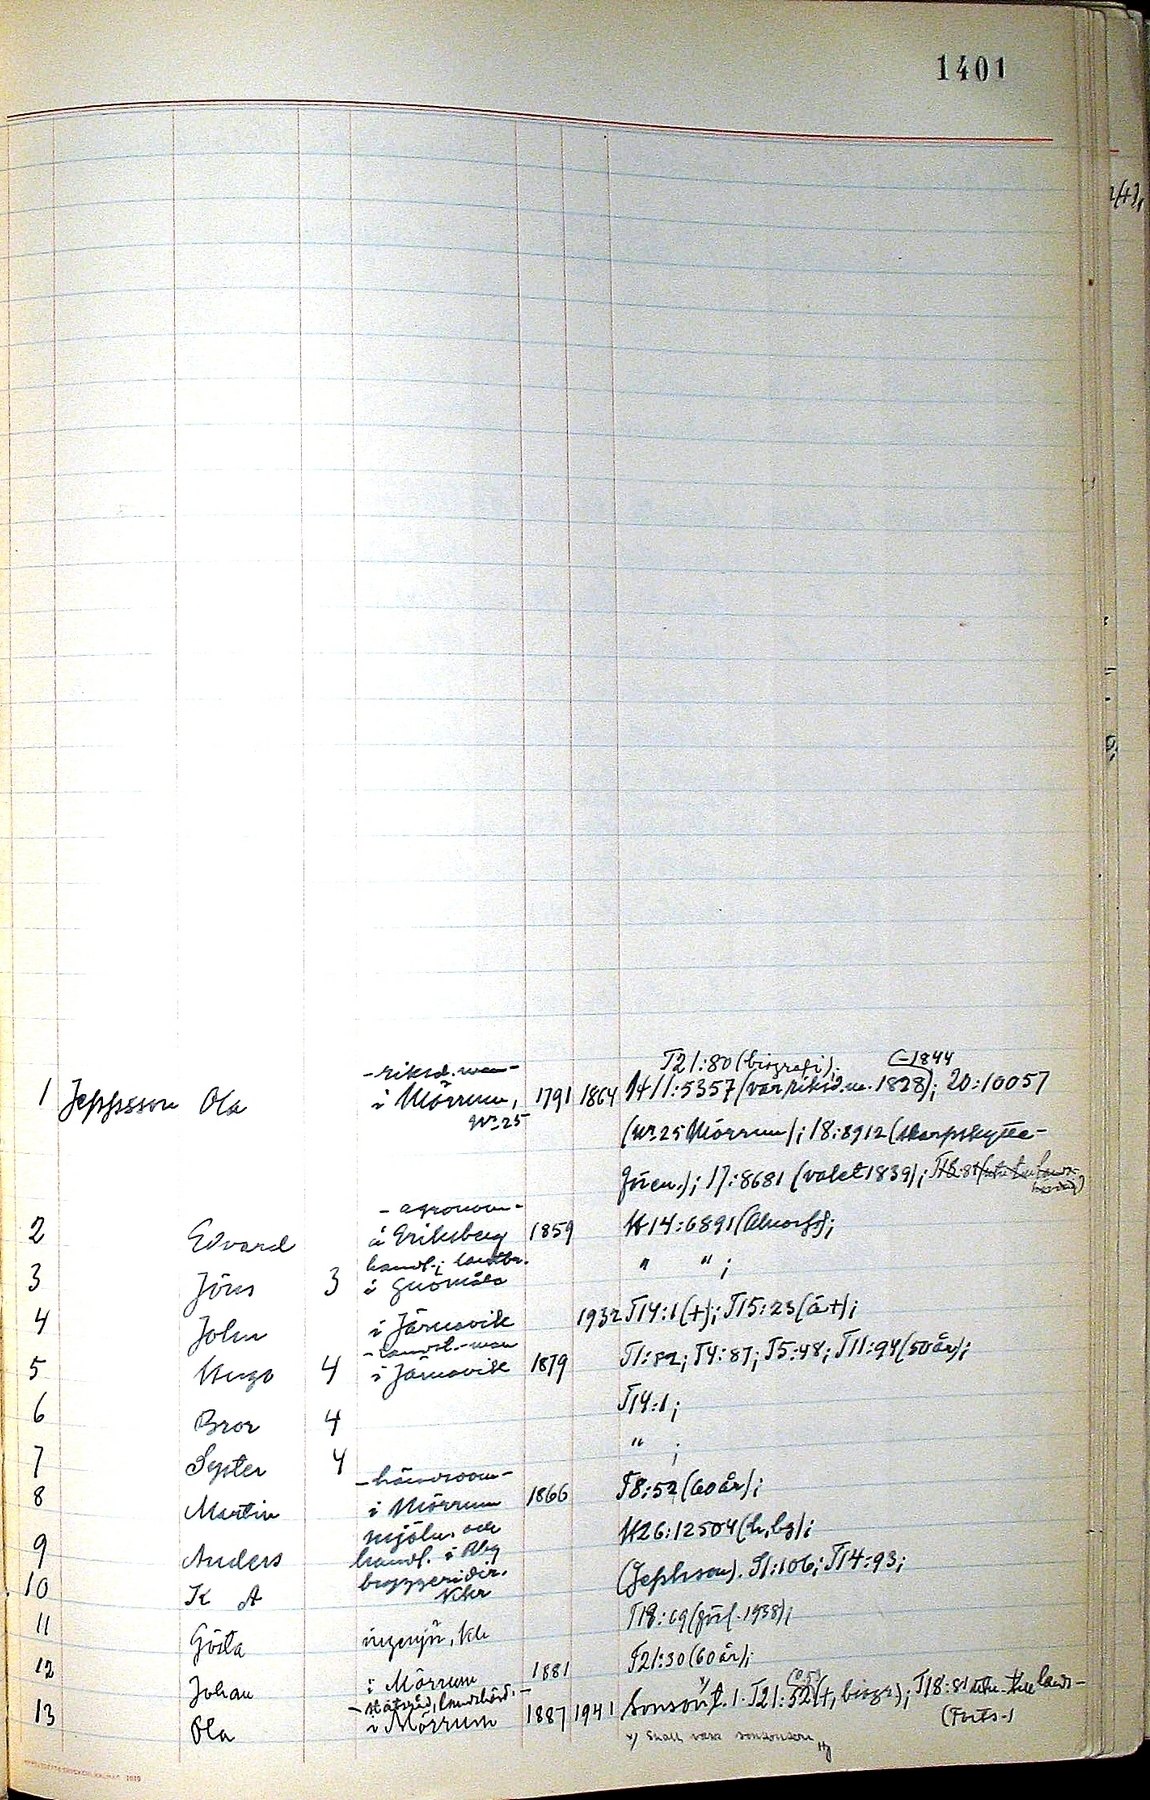 1401
T21:80 (biografi);
(-1844
- riksd.man -
1 Jeppsson Ola i Mörrum, 1791 1864 K11:5357 (var riksd.m. 1828); 20:10057
Nr 25
(Nr 25 Mörrum); 18:8912 (skarpskytte-
fören.); 17:8681 (valet 1839);
- agronom -
2 Edvard å Eriksberg 1859 K14:6891
handl.; lantbr.
3 Jöns 3 i " " ;
4 John i Järnavik 1932 T14:1 (+); T15:23 (å+);
- landst.-man
5 Hugo 4 i Järnavik 1879 T1:82; T4:87; T5:48; T11:94 (50 år);
6 Bror 4 T14:1;
7 Syster 4 " ;
8 Martin i Mörrum 1866 T8:52 (60 år);
mjöln. och
9 Anders handl. i Rby K26:12504 (h, bg);
bryggeridir.
10 K A Khr (Jephson). T1:106; T14:93;
11 Gösta ingenjör, Khr T18:69 (förf. 1938);
12 Johan i Mörrum 1881 T21:30 (60 år);
- statsråd, landshövd. -
13 Ola i Mörrum 1887 1941 Sonson t. 1. T21:52 (+, biogr); T18:81 lands-
(Forts.)
x) Skall vara sonsonson